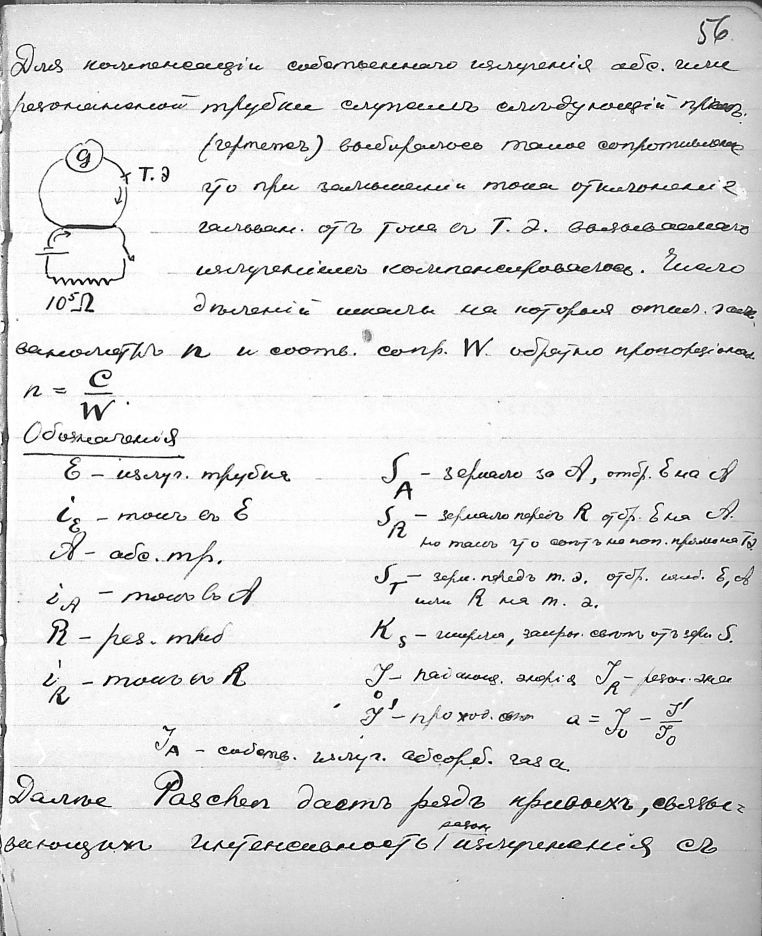 56
Для компенсаціи собственнаго излученія абс. или
резонансной трубки служилъ слѣдующій
(чертежъ) выбиралось такое сопротивленіе
что при замыканіи тока отклоненіе
гальван. отъ тока въ Т. Э. вызываемаго
излученіемъ компенсировалось. Число
дѣленій шкалы на которыя откл. галь-
ванометръ n и соотв. сопр. W. обратно пропорціонал.
g
Т. Э
10⁵ Ω
n = C/W.
Обозначенія
E – излуч. трубка
i_E – токъ въ E
A – абс. тр.
i_A – токъ въ A
R – рез. труб
i_R – токъ въ R
S_A – зеркало за A, отбр. E на A
S_R – зеркало передъ R отбр. E на A.
но такъ что свѣтъ не поп. прямо на ТЭ
S_T – зерк. передъ т. э. отбр. E, A
или R на т. э.
K_S – ширма, закры. свѣтъ отъ зерк. S.
J_0 – падающ. энергія J_R – резон. эне
J' – проход. свѣт a = J_0 – J'/J_0
J_A – собств. излуч. абсорб. газа
Далѣе Paschen даетъ рядъ кривыхъ, связы-
вающихъ интенсивность резон. излученія съ